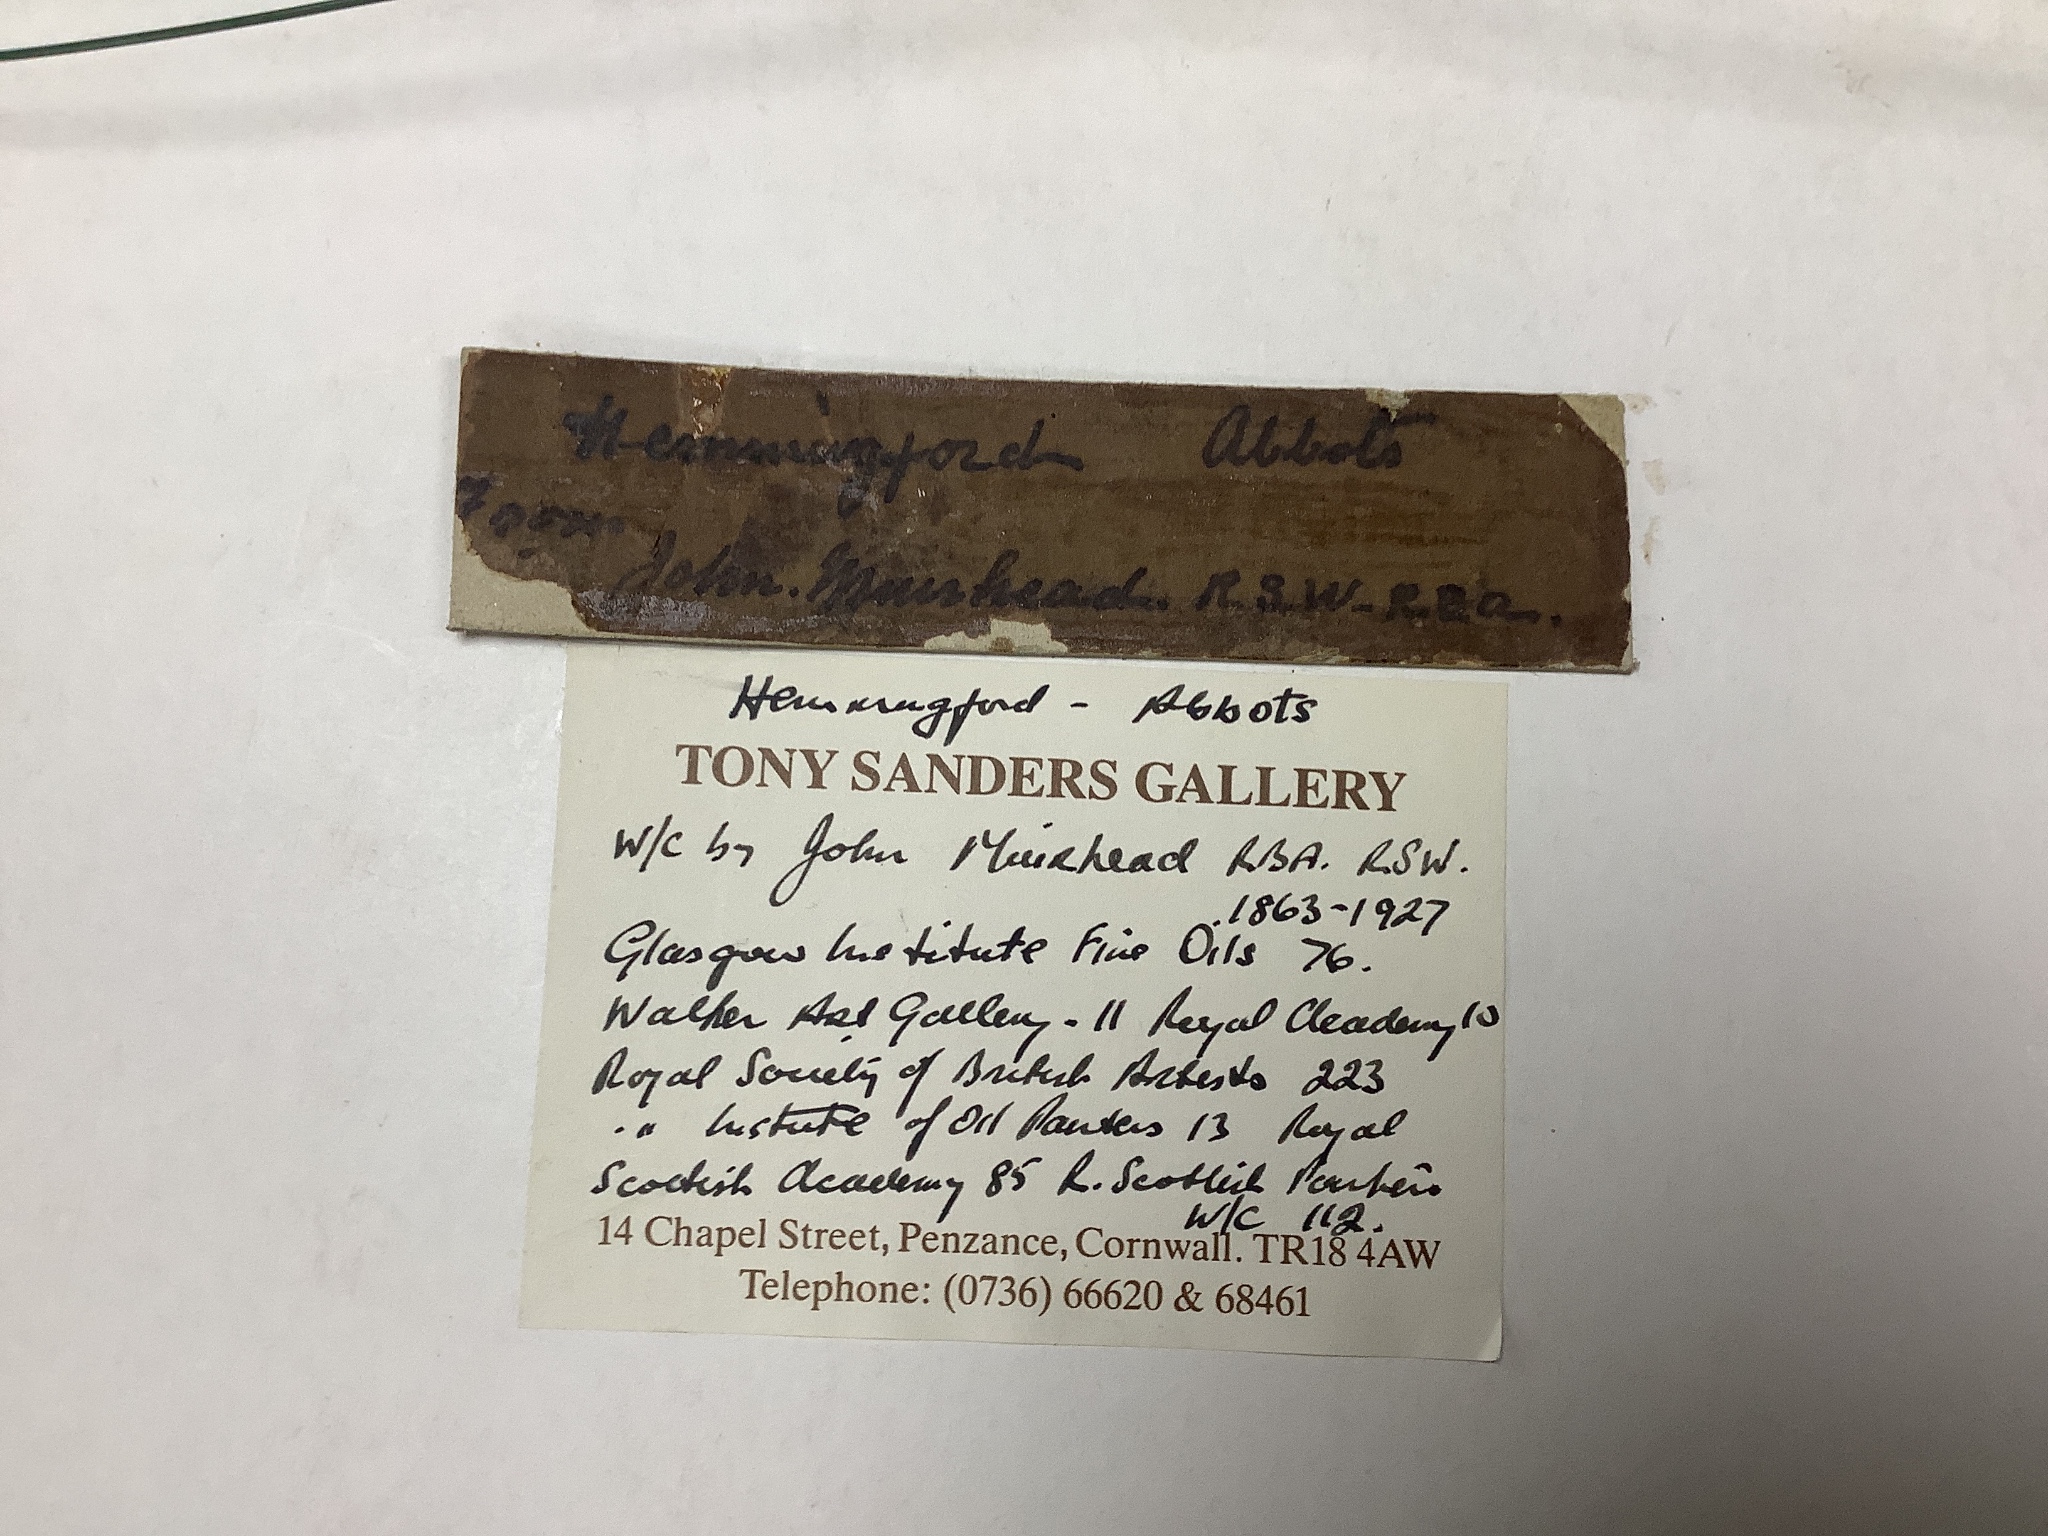 Hemmingford Abbots
John. Muirhead. R.S.W-R.B.a.
Hemmingford - Abbots
TONY SANDERS GALLERY
W/C by John Muirhead R.B.A. R.S.W.
1863-1927
Glasgow Institute Fine Oils 76.
Walker Art Gallery - 11 Royal Academy 10
Royal Society of British Artists 223
" Institute of Oil Painters 13 Royal
Scottish Academy 85 R. Scottish Painters
W/C 112.
14 Chapel Street, Penzance, Cornwall. TR18 4AW
Telephone: (0736) 66620 & 68461